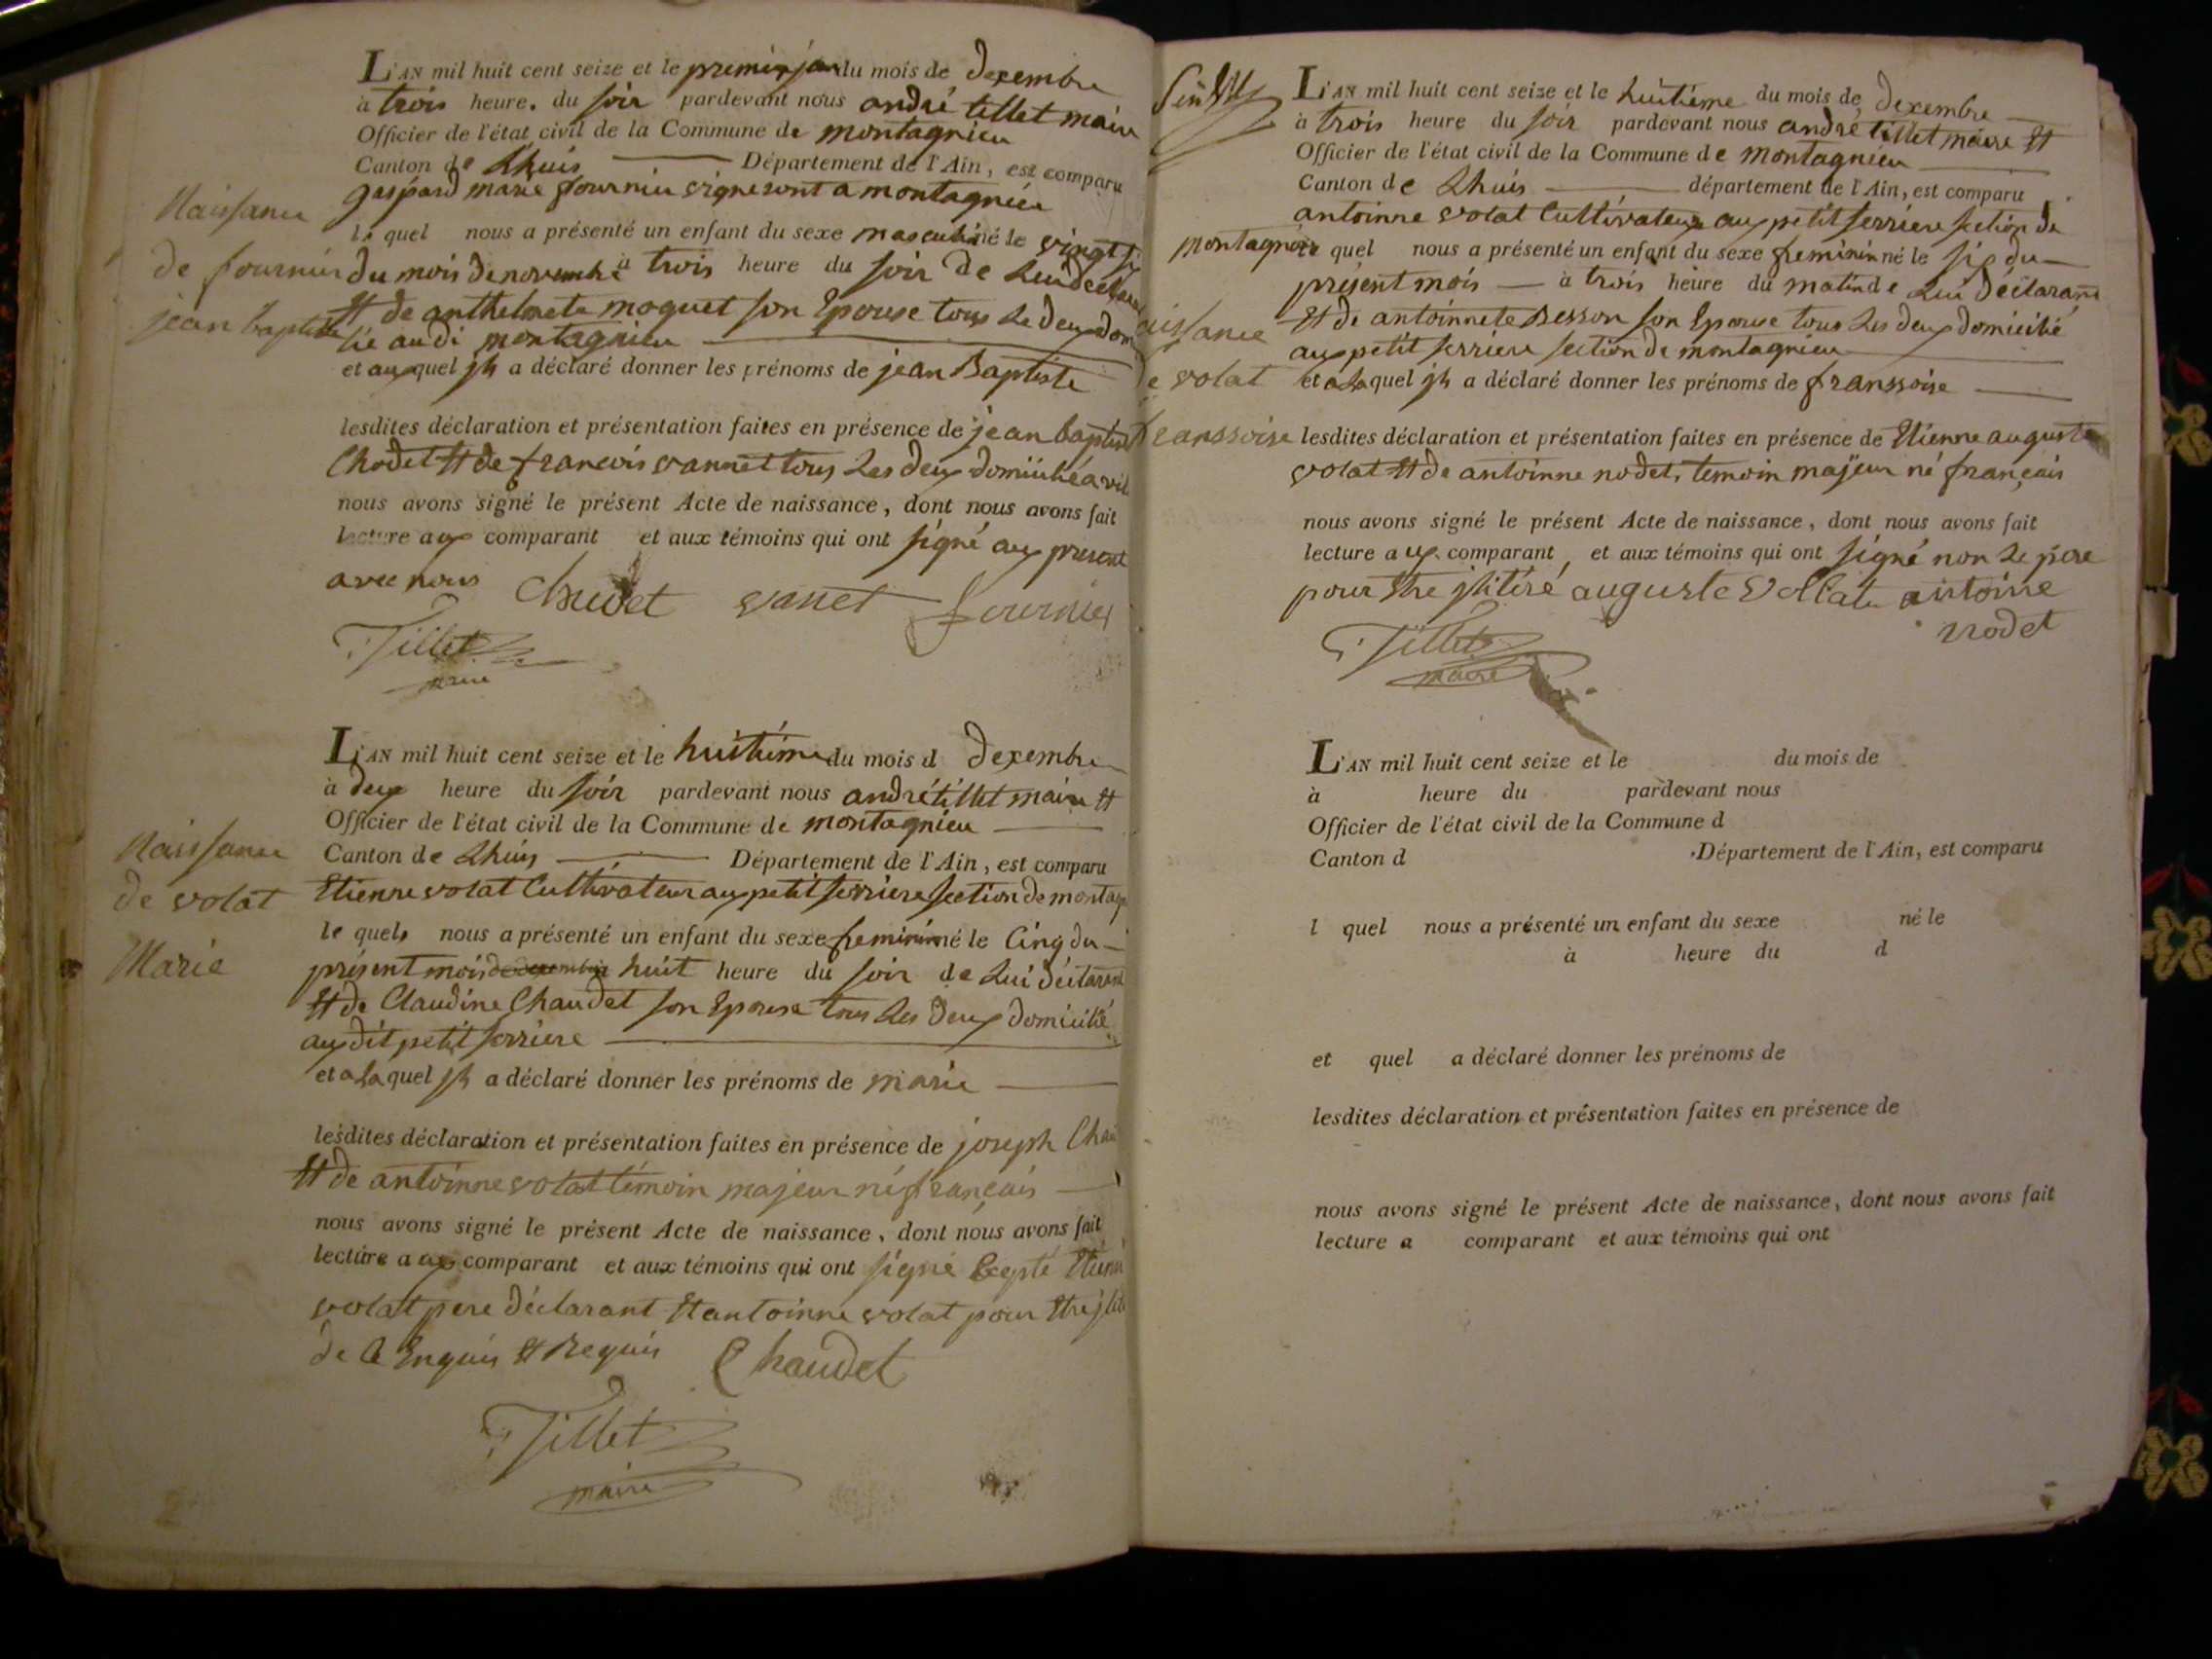 L'AN mil huit cent seize et le premier jour du mois de decembre
à trois heure. du soir pardevant nous andré tillet maire
Officier de l'état civil de la Commune de montagnieu
Canton de Lhuis Département de l'Ain, est comparu
gaspard marie fournier vigneront a montagnieu
le quel nous a présenté un enfant du sexe masculin né le vingt six
du mois de novembre a trois heure du soir de Lui declarant
Et de anthelmete moquet son Epouse tous Le deux domi
lié audi montagnieu
et auquel jl a déclaré donner les prénoms de jean Baptiste
Naissance
de fournier
jean baptiste
lesdites déclaration et présentation faites en présence de jean baptiste
Chodet Et de francois vannet tous Les deux domicilié a
nous avons signé le présent Acte de naissance, dont nous avons fait
lecture aux comparant et aux témoins qui ont signé aux present
avec nous Chudet vanet fournier
Tillet
maire
L'AN mil huit cent seize et le huitieme du mois d decembre
à deux heure du soir pardevant nous andré tillet maire Et
Officier de l'état civil de la Commune de montagnieu
Canton de Lhuis Département de l'Ain, est comparu
Etienne volat Cultivateur aux petit serriere section de montag
le quel nous a présenté un enfant du sexe feminin né le Cinq du
présent mois de decembre huit heure du soir de Lui déclarant
Et de Claudine Chaudet son Epouse tous Les deux domicilié
aux dit petit serriere
et a La quel jl a déclaré donner les prénoms de marie
Naissance
de volat
Marie
lesdites déclaration et présentation faites en présence de joseph Chau
Et de antoinne volat témoin majeur né français
nous avons signé le présent Acte de naissance, dont nous avons fait
lecture a ux comparant et aux témoins qui ont signé Excepté Etienne
volat pere déclarant Et antoinne volat pour Etre jlite
de Ce Enquis Et Requis Chaudet
Tillet
maire
L'AN mil huit cent seize et le huitiéme du mois de decembre
à trois heure du soir pardevant nous andré tillet maire Et
Officier de l'état civil de la Commune de montagnieu
Canton de Lhuis département de l'Ain, est comparu
antoinne volat Cultivateur aux petit serriere section de
montagnieu le quel nous a présenté un enfant du sexe feminin né le six du
présent mois à trois heure du matin de Lui déclarant
Et de antoinnete Besson son Epouse tous Les deux domicilié
aux petit serriere section de montagnieu
et a La quel jl a déclaré donner les prénoms de franssoise
aissance
de volat
franssoise
lesdites déclaration et présentation faites en présence de Etienne auguste
volat Et de antoinne nodet, temoin majeur né français
nous avons signé le présent Acte de naissance, dont nous avons fait
lecture a ux comparant, et aux témoins qui ont signé non Le pere
pour Etre jlitéré auguste Vollat antoine
nodet
Tillet
maire
L'AN mil huit cent seize et le du mois de
à heure du pardevant nous
Officier de l'état civil de la Commune d
Canton d Département de l'Ain, est comparu
l quel nous a présenté un enfant du sexe né le
à heure du d
et quel a déclaré donner les prénoms de
lesdites déclaration et présentation faites en présence de
nous avons signé le présent Acte de naissance, dont nous avons fait
lecture a comparant et aux témoins qui ont